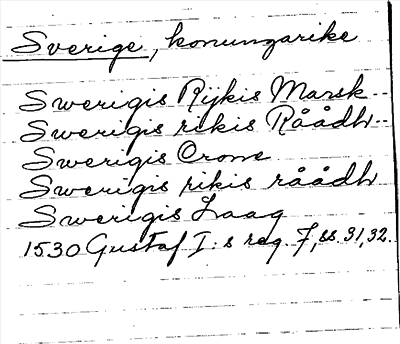 Sverige, konungarike
Swerigis Rijkis Marsk
Swerigis rikis Råådh
Swerigis Crone
Swerigis rikis råådh
Swerigis Laag
1530 Gustaf I:s reg. 7, ss. 31, 32.